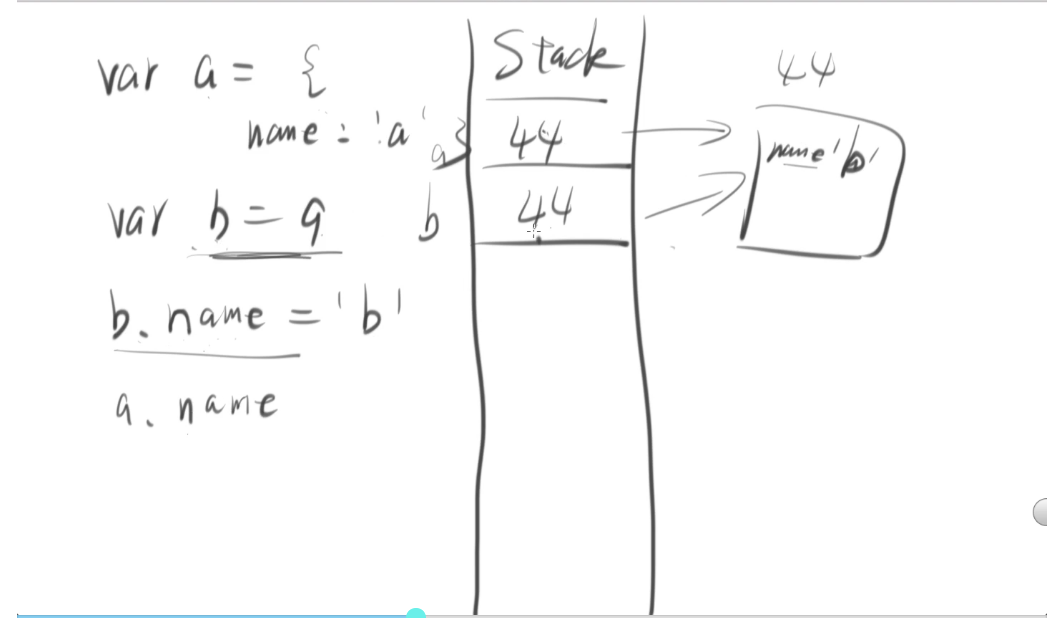 var a = {
name : 'a' }
var b = a
b.name = 'b'
a.name
Stack
a 44
b 44
44
name 'b'